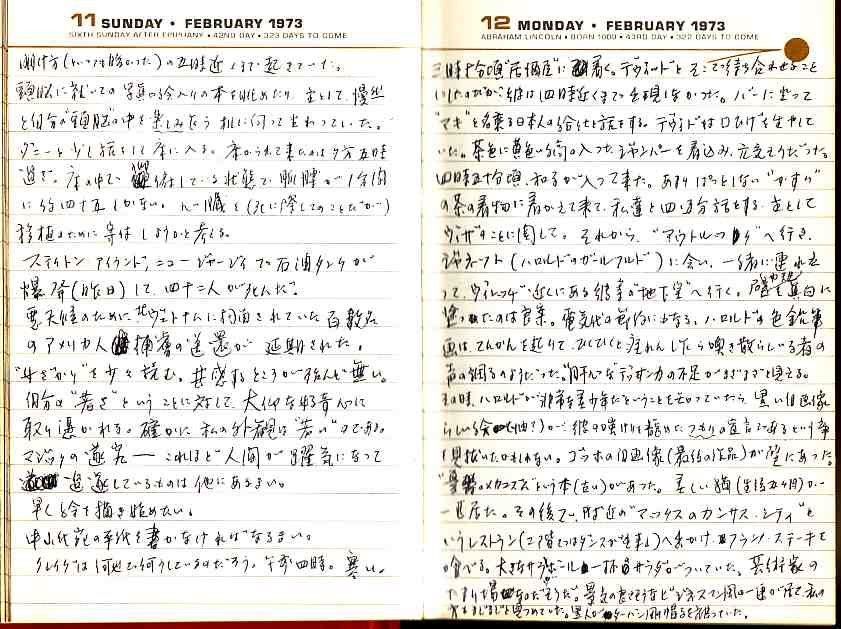 11 SUNDAY • FEBRUARY 1973
SIXTH SUNDAY AFTER EPIPHANY • 42ND DAY • 323 DAYS TO COME
明け方(といっても暗かった)の五時近くまで起きていた。
頭脳に就いての写真や絵入りの本を眺めたり、主として、漫然
と自分の頭脳の中を楽しみながら机に向って坐わっていた。
ダニーと少し話をして床に入る。
過ぎ。床の中で している状態で脈膊が1分間
に約四十五しかない。心臓を(死に際してのことだが)
移植のために寄付しようかと考える。
スタイトン アイランド、ニュージャージイで石油タンクが
爆発(昨日)して、四十二人が死んだ。
悪天候のために北ヴェトナムに拘留されていた百数名
のアメリカ人捕虜の送還が延期された。
を少々読む。共感するところが殆んど無い。
自分の“若さ”ということに対して、大仰な好奇心に
取り憑かれる。確かに私の外観は“若い”のである。
これほど人間が躍気になって
追逐しているものは他にあるまい。
早く絵を描き始めたい。
手紙を書かなければなるまい。
クレイグは何処で何をしているのだろう。午前四時。寒い。
12 MONDAY • FEBRUARY 1973
ABRAHAM LINCOLN • BORN 1809 • 43RD DAY • 322 DAYS TO COME
三時十分頃“居酒屋”に着く。デヴィッドとそこで待ち合わせること
にしたのだが、彼は四時近くまで姿を現わさなかった。バーに坐って
“マキ”と名乗る日本人の給仕と話をする。デヴィッドは口ひげを生やして
いた。茶色に黄色い筋の入ったジャンパーを着込み、元気そうだった。
四時五十分頃、和子が入って来た。あまりぱっとしない“かすり”
の茶の着物に着かえて来て、私達と四、五分話をする。主として
ヴィザのことに関して。それから、“アウトルック”へ行き、
ジャネット(ハロルドのガールフレンド)に会い、一緒に連れ立
って、ヴィレッヂ近くにある彼等の“地下室”へ行く。 真白に
塗ったのは良策。電気代の節約にもなる。ハロルドの色鉛筆
画は、てんかんを起して、ひくひくと痙れんしたら喚き散らしている者の
声の綱のようだった。肝心なデッサン力の不足がまざまざと見える。
その時、ハロルドが非常な美少年だということをさとっていたら、黒い自画像
らしい絵(油?)が、彼の 宣言であるという事
を見抜いたかもしれない。ゴッホの自画像(最後の作品)が壁にあった。
メカニズム”という本(古い)があった。美しい猫(生後五ヶ月)が
一匹居た。その後で、すぐ近の“マックスのカンサス・シティ”と
いうレストラン(二階ではダンスが出来る)へ出かけ、フランク・ステーキを
喰べる。大きなサラダ・ボール一杯のサラダがついていた。芸術家の
たまり場なのだそうだ。景気の良さそうなビジネスマン風の一連が居て、私の
方をまじまじと見つめていた。黒人がターバン風の帽子を被っていた。